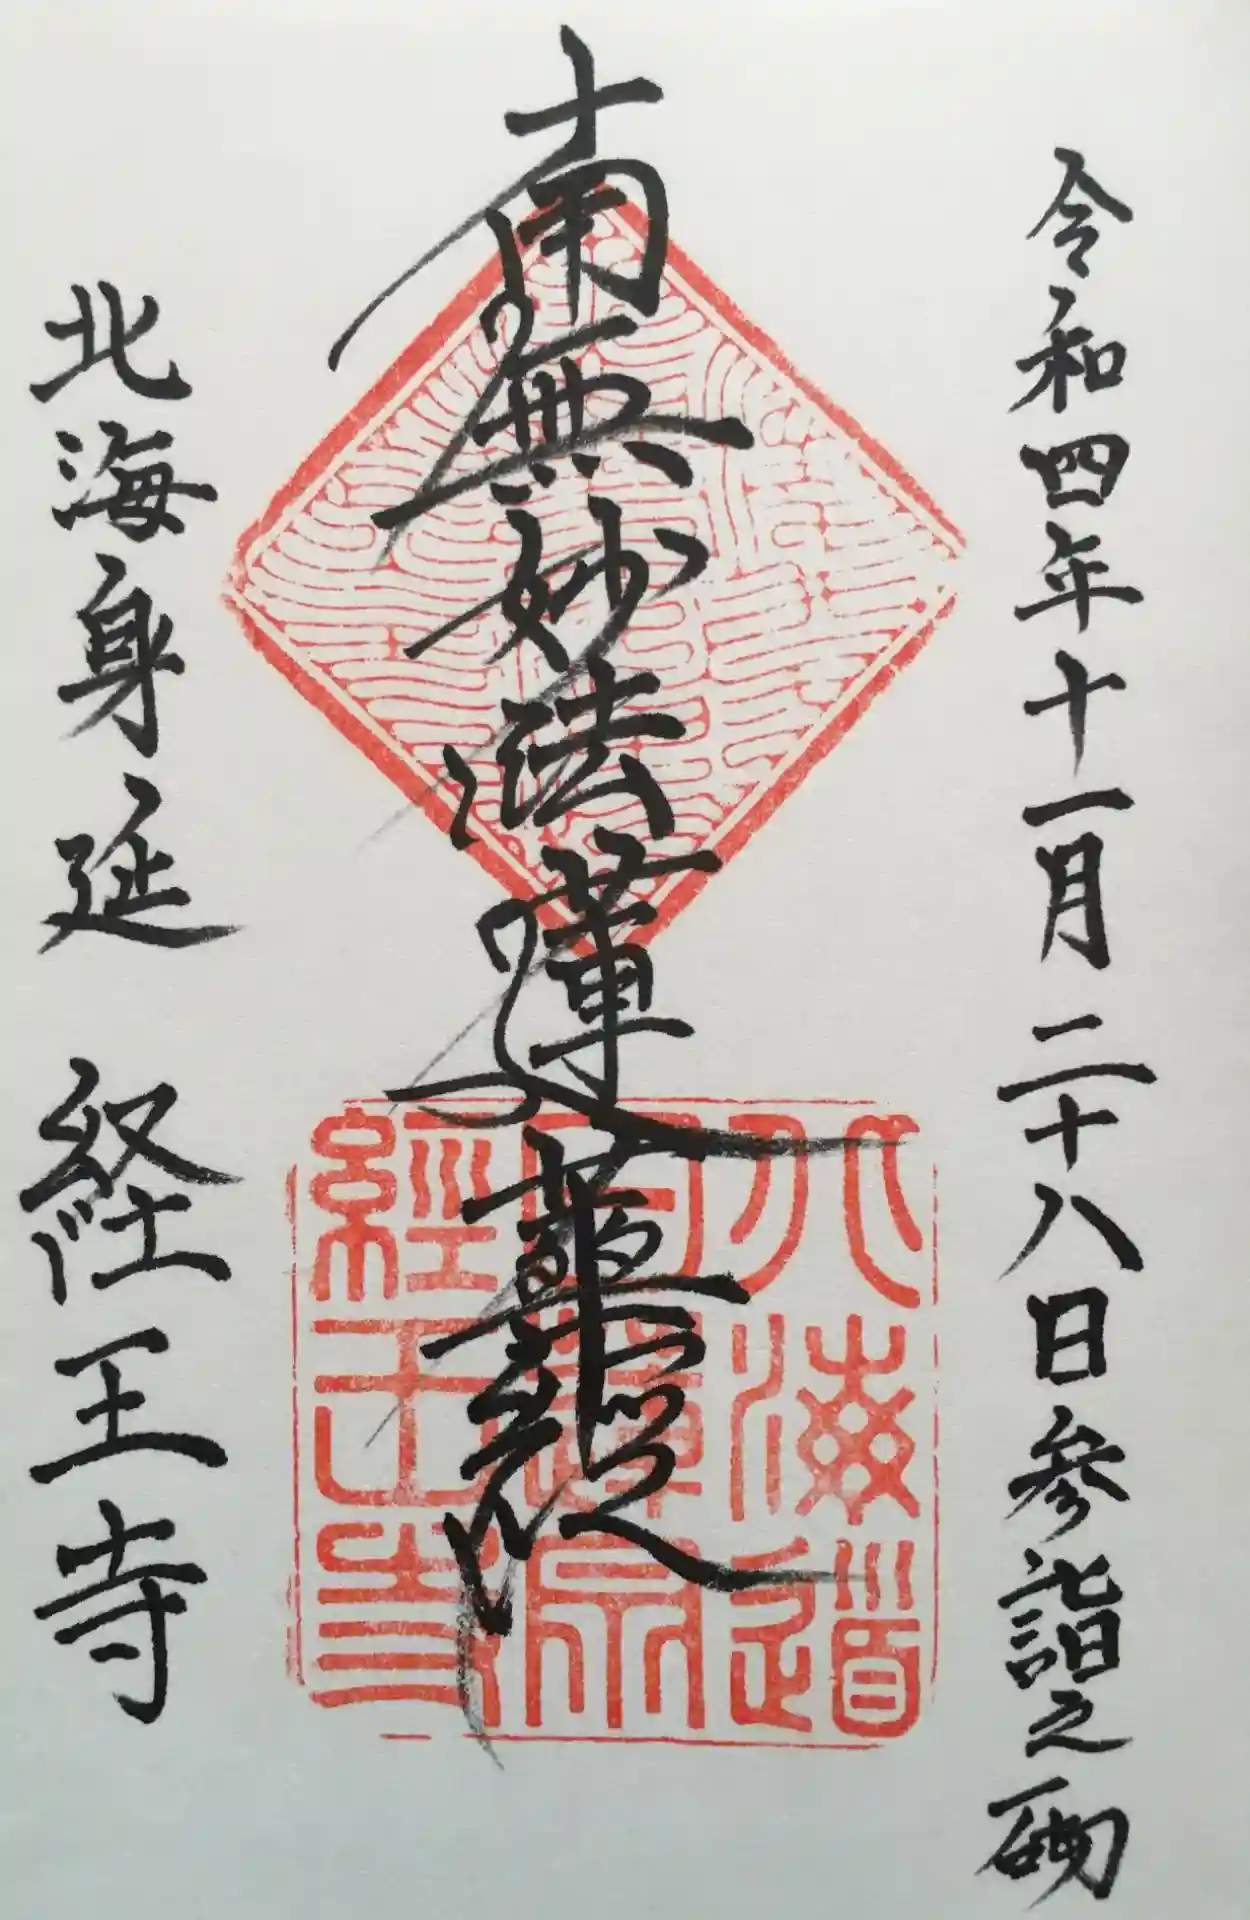 令和四年十一月二十八日参詣之砌
南無妙法蓮華経
北海道
日蓮宗
經王寺
北海身延 経王寺